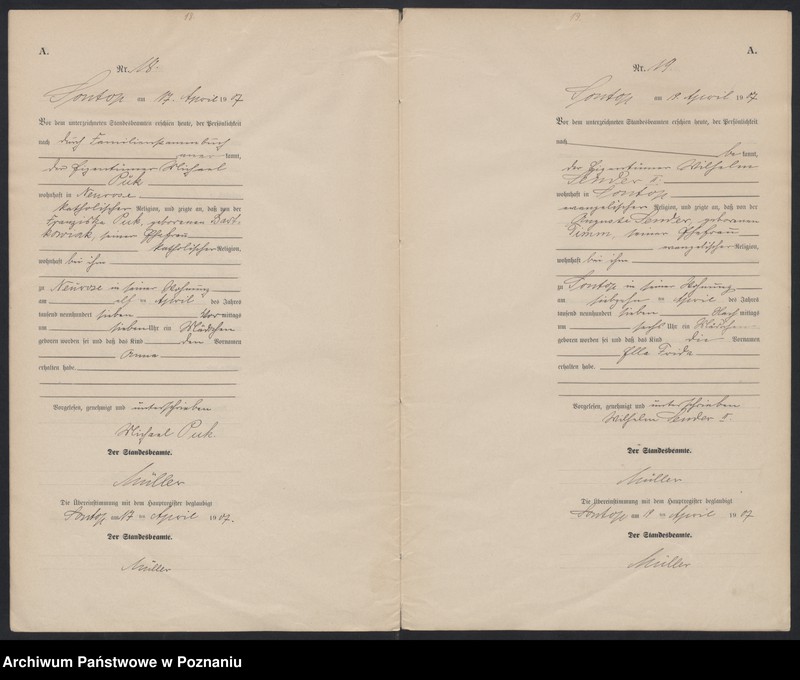 A.
Nr. 18.
Sontop am 17. April 1907
Vor dem unterzeichneten Standesbeamten erschien heute, der Persönlichkeit
nach durch Familienstammbuch
kannt,
der Eigentümer Michael
Puk
wohnhaft in Neurose
katholischer Religion, und zeigte an, daß von der
Franziska Puk, geborenen Bart-
kowiak, seiner Ehefrau
katholischer Religion,
wohnhaft bei ihm
zu Neurose in seiner Wohnung
am elf ten April des Jahres
tausend neunhundert sieben Vor mittags
um sieben Uhr ein Mädchen
geboren worden sei und daß das Kind den Vornamen
Anna
erhalten habe.
Vorgelesen, genehmigt und unterschrieben
Michael Puk
Der Standesbeamte.
Müller
Die Übereinstimmung mit dem Hauptregister beglaubigt
Sontop am 17 ten April 1907.
Der Standesbeamte.
Müller
19
A.
Nr. 19
Sontop am April 1907
Vor dem unterzeichneten Standesbeamten erschien heute, der Persönlichkeit
nach
be kannt,
der Eigentümer Wilhelm
Sender I.
wohnhaft in Sontop
evangelischer Religion, und zeigte an, daß von der
Auguste Sender, geborenen
Timm, seiner Ehefrau
evangelischer Religion,
wohnhaft bei ihm
zu Sontop in seiner Wohnung
am siebzehn ten April des Jahres
tausend neunhundert sieben Nach mittags
um sechs Uhr ein Mädchen
geboren worden sei und daß das Kind die Vornamen
Ella Frida
erhalten habe.
Vorgelesen, genehmigt und unterschrieben
Wilhelm Sender I.
Der Standesbeamte.
Müller
Die Übereinstimmung mit dem Hauptregister beglaubigt
Sontop am ten April 1907
Der Standesbeamte.
Müller
Archiwum Państwowe w Poznaniu